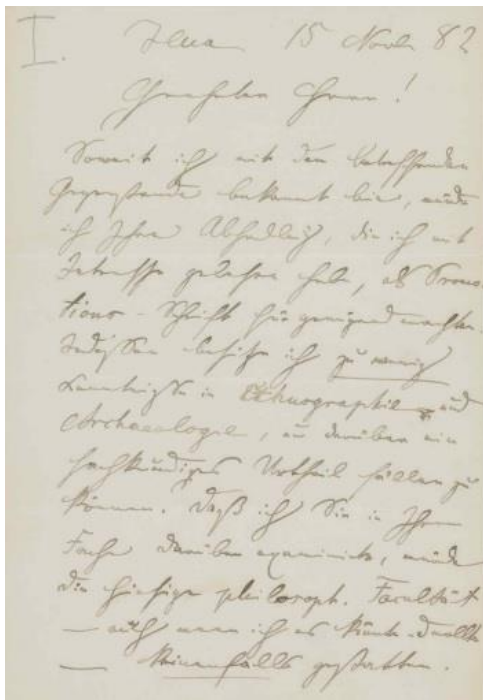 I.
Jena 15 Nov. 82
Geehrter Herr!
Soweit ich mit dem betreffenden
Gegenstande bekannt bin, würde
ich Ihre Abhandlg, die ich mit
Interesse gelesen habe, als Promo-
tions-Schrift für genügend erachten.
Indessen besitze ich zu wenig
Kenntnisse in Ethnographie und
Archaeologie, um darüber ein
sachkundiges Urtheil fällen zu
können. Daß ich Sie in Ihrem
Fache darüber examinirte, würde
die hiesige philosoph. Facultät
— auch wenn ich es könnte
— keinenfalls gestatten.